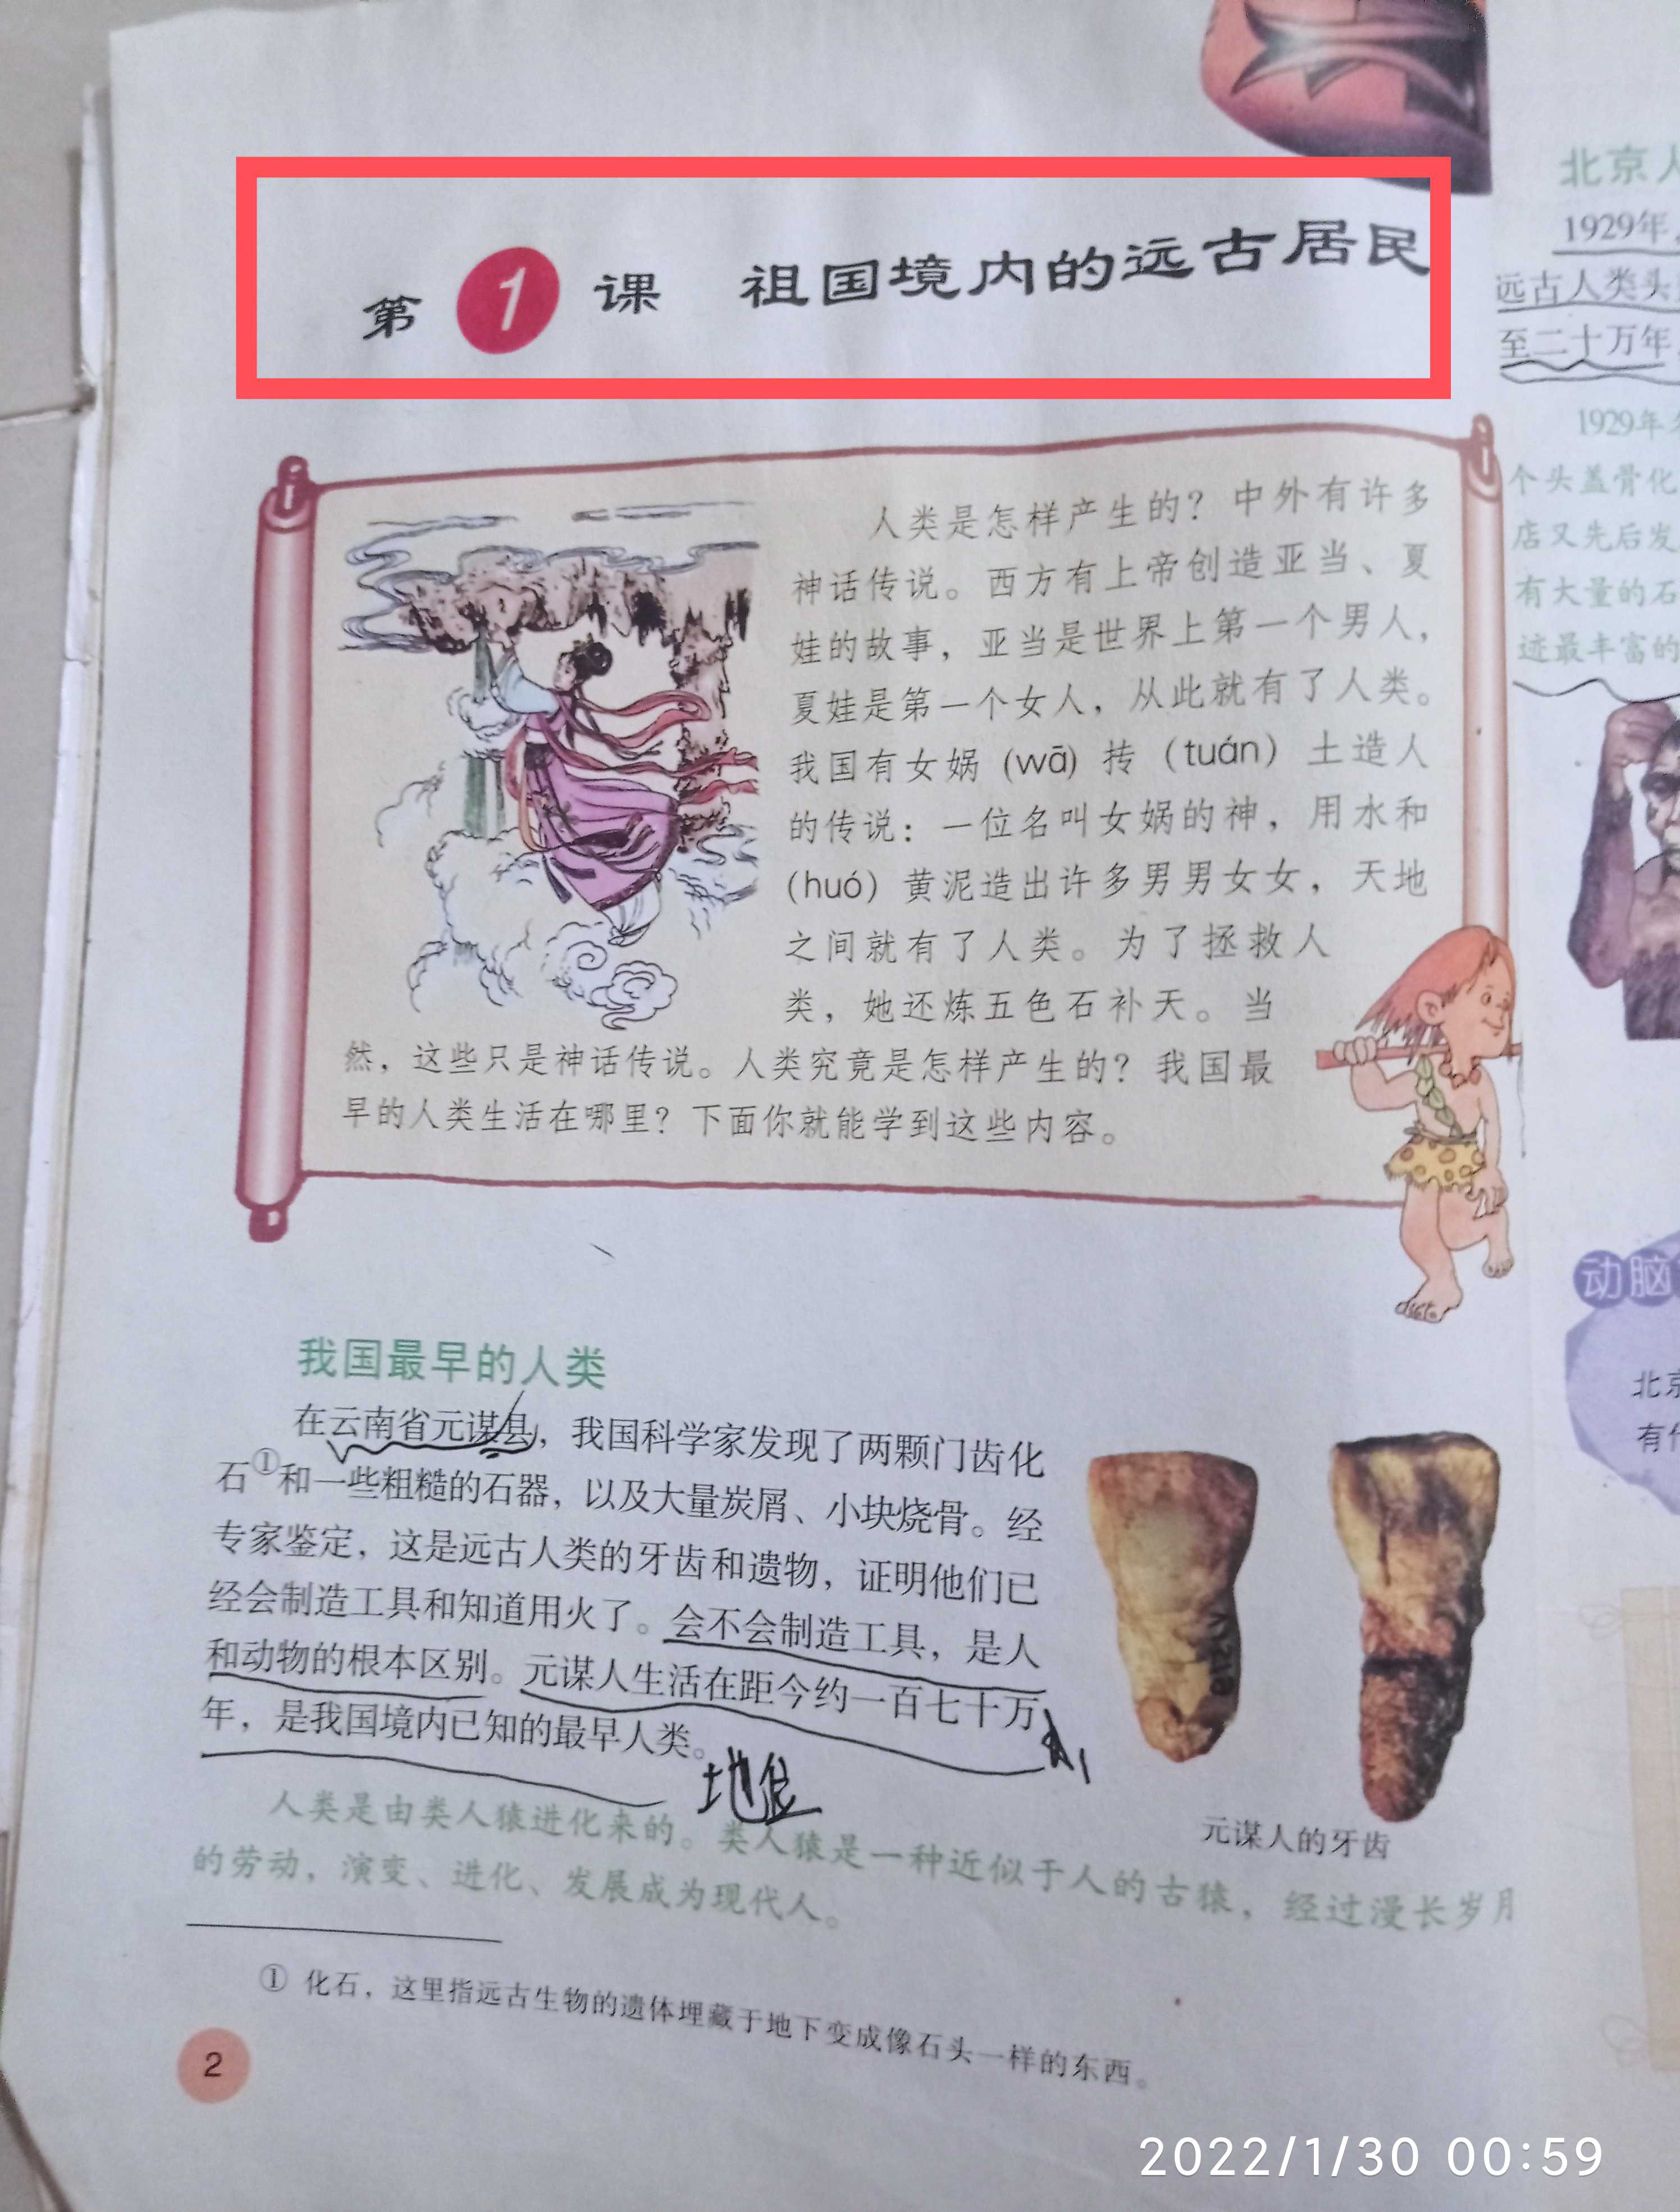 第1课 祖国境内的远古居民
人类是怎样产生的？中外有许多
神话传说。西方有上帝创造亚当、夏
娃的故事，亚当是世界上第一个男人，
夏娃是第一个女人，从此就有了人类。
我国有女娲（wā）抟（tuán）土造人
的传说：一位名叫女娲的神，用水和
（huó）黄泥造出许多男男女女，天地
之间就有了人类。为了拯救人
类，她还炼五色石补天。当
然，这些只是神话传说。人类究竟是怎样产生的？我国最
早的人类生活在哪里？下面你就能学到这些内容。
我国最早的人类
在云南省元谋县，我国科学家发现了两颗门齿化
石①和一些粗糙的石器，以及大量炭屑、小块烧骨。经
专家鉴定，这是远古人类的牙齿和遗物，证明他们已
经会制造工具和知道用火了。会不会制造工具，是人
和动物的根本区别。元谋人生活在距今约一百七十万
年，是我国境内已知的最早人类。
地位
元谋人的牙齿
人类是由类人猿进化来的。类人猿是一种近似于人的古猿，经过漫长岁月
的劳动，演变、进化、发展成为现代人。
① 化石，这里指远古生物的遗体埋藏于地下变成像石头一样的东西。
2
北京人
1929年，
远古人类头
至二十万年
1929年
个头盖骨化
店又先后发
有大量的石
迹最丰富的
动脑
北京
有什
2022/1/30 00:59